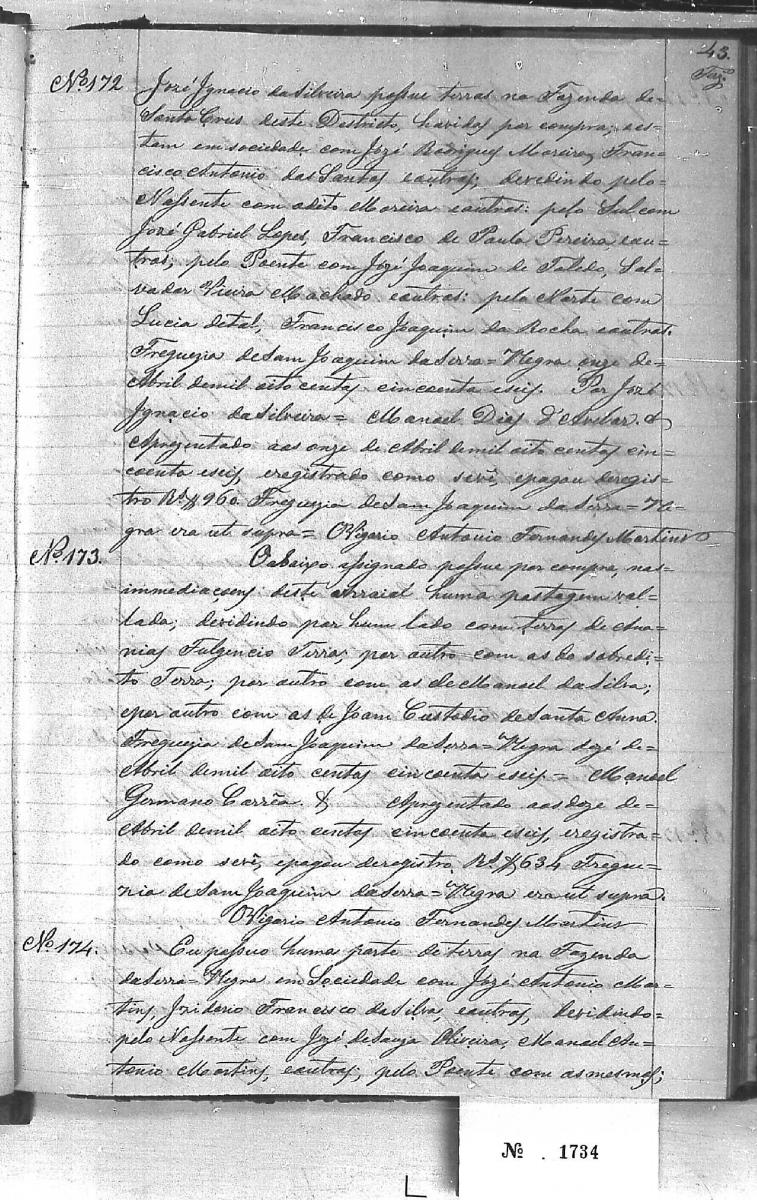 43.
No. 172
José Ignacio da Silveira possue terras na Fazenda de=
Santa Crus deste Destricto, havidas por compra; aes=
tam em sociedade com José Rodrigues Moreira, Fran=
cisco Antonio dos Santos eoutros; devedindo pelo=
Nassente com odito Moreira eoutros: pelo Sul com
José Gabriel Lopes, Francisco de Paula Pereira eou=
tros; pelo Poente com José Joaquim de Toledo, Sal=
vador Vieira Machado eoutros: pelo Norte com
Lucia detal, Francisco Joaquim da Rocha eoutros.
Freguezia deSam Joaquim daSerra=Negra onze de=
Abril demil oito centos cincoenta eseis. Por José
Ignacio daSilveira= Manoel Dias d'Avelar. &
Aprezentado aos onze de Abril demil oito centos cin=
coenta eseis, eregistrado como sevê, epagou deregis=
tro Rs $960. Freguezia deSam Joaquim da Serra=Ne=
gra era ut supra= OVigario Antonio Fernandes Martins
No. 173.
Oabaixo assignado possue por compra, nas=
immediaçoens deste Arraial huma pastagem val=
lada; devidindo por hum lado com terras de Ana=
nias Fulgencio Terra; por outro com as do sobredi=
to Terra; por outro com as deManoel daSilva;
epor outro com as de Joam Custodio deSanta Anna.
Freguezia deSam Joaquim daSerra=Negra doze de=
Abril demil oito centos cincoenta eseis= Manoel
Germano Corrêa. & Aprezentado aos doze de=
Abril demil oito centos cincoenta eseis, eregistra=
do como sevê, epagou deregistro Rs $634 Fregue=
zia deSam Joaquim daSerra=Negra era ut supra.
OVigario Antonio Fernandes Martins
No. 174.
Eu possuo huma parte de terras na Fazenda
daSerra=Negra em Sociedade com José Antonio Mar=
tins, Francisco daSilva, eoutros, devidindo=
pelo Nassente com José deSouza Oliveira, Manoel An=
tonio Martins, eoutros; pelo Poente com osmesmos;
No. 1734